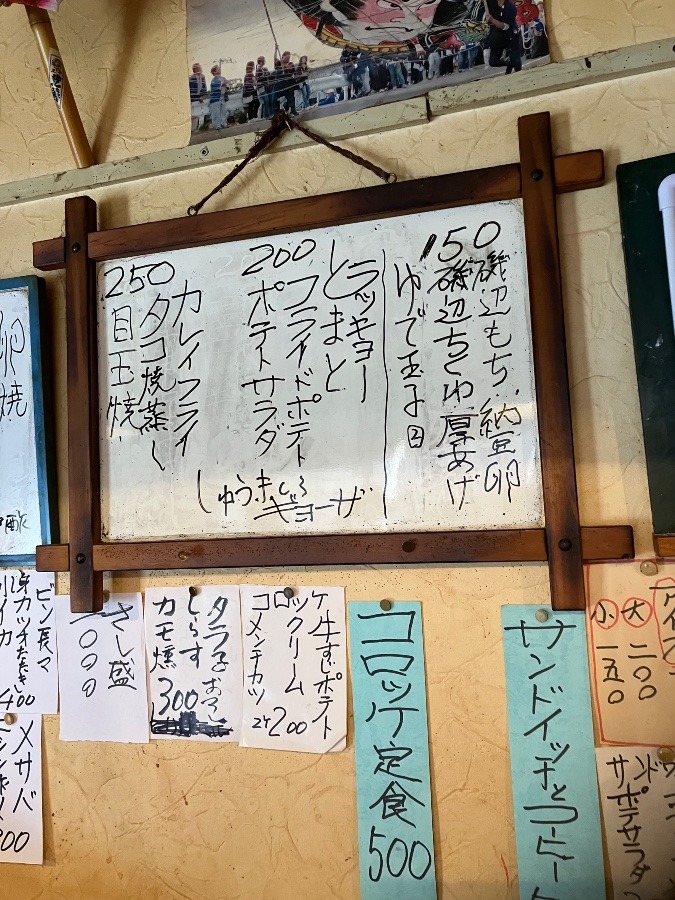 150
磯辺もち 納豆 卵
磯辺ちくわ 厚あげ
ゆで玉子
ラッキョー
とまと
200
フライドポテト
ポテトサラダ
ギョーザ
しゅうまい
カレイフライ
250
タコ焼 蒸し
目玉焼
卵焼
酢
ビン長マ
400
メサバ
さし盛
1000
タラ子おろし
しらす
カモ燻 300
牛すじポテト
クリーム
メンチカツ
2ケ200
コロッケ定食 500
サンドイッチとコーヒー
大 二〇〇
小 一五〇
サンド
ポテサラダ